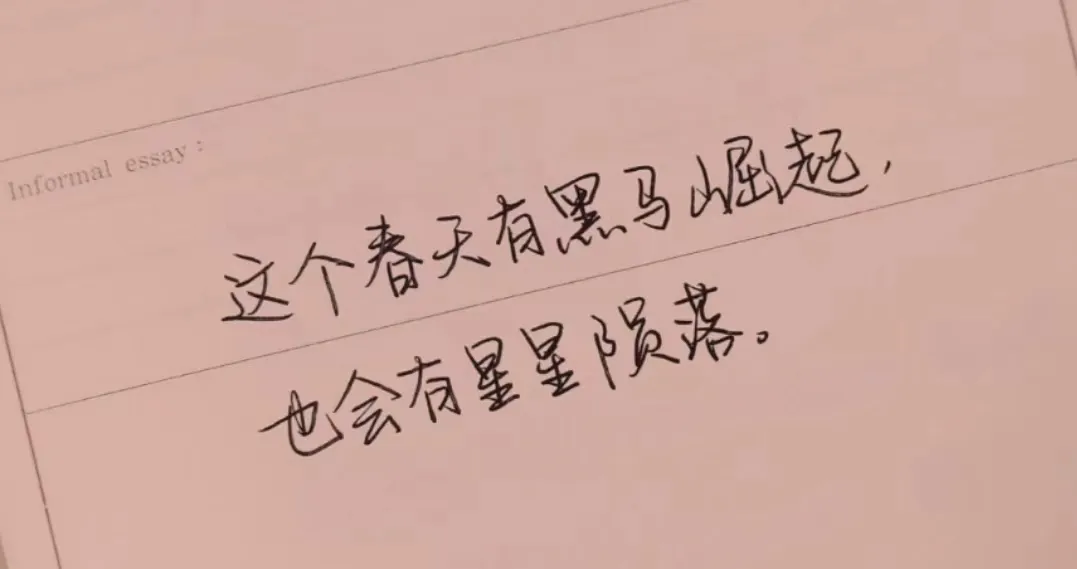 Informal essay：
这个春天有黑马崛起，
也会有星星陨落。